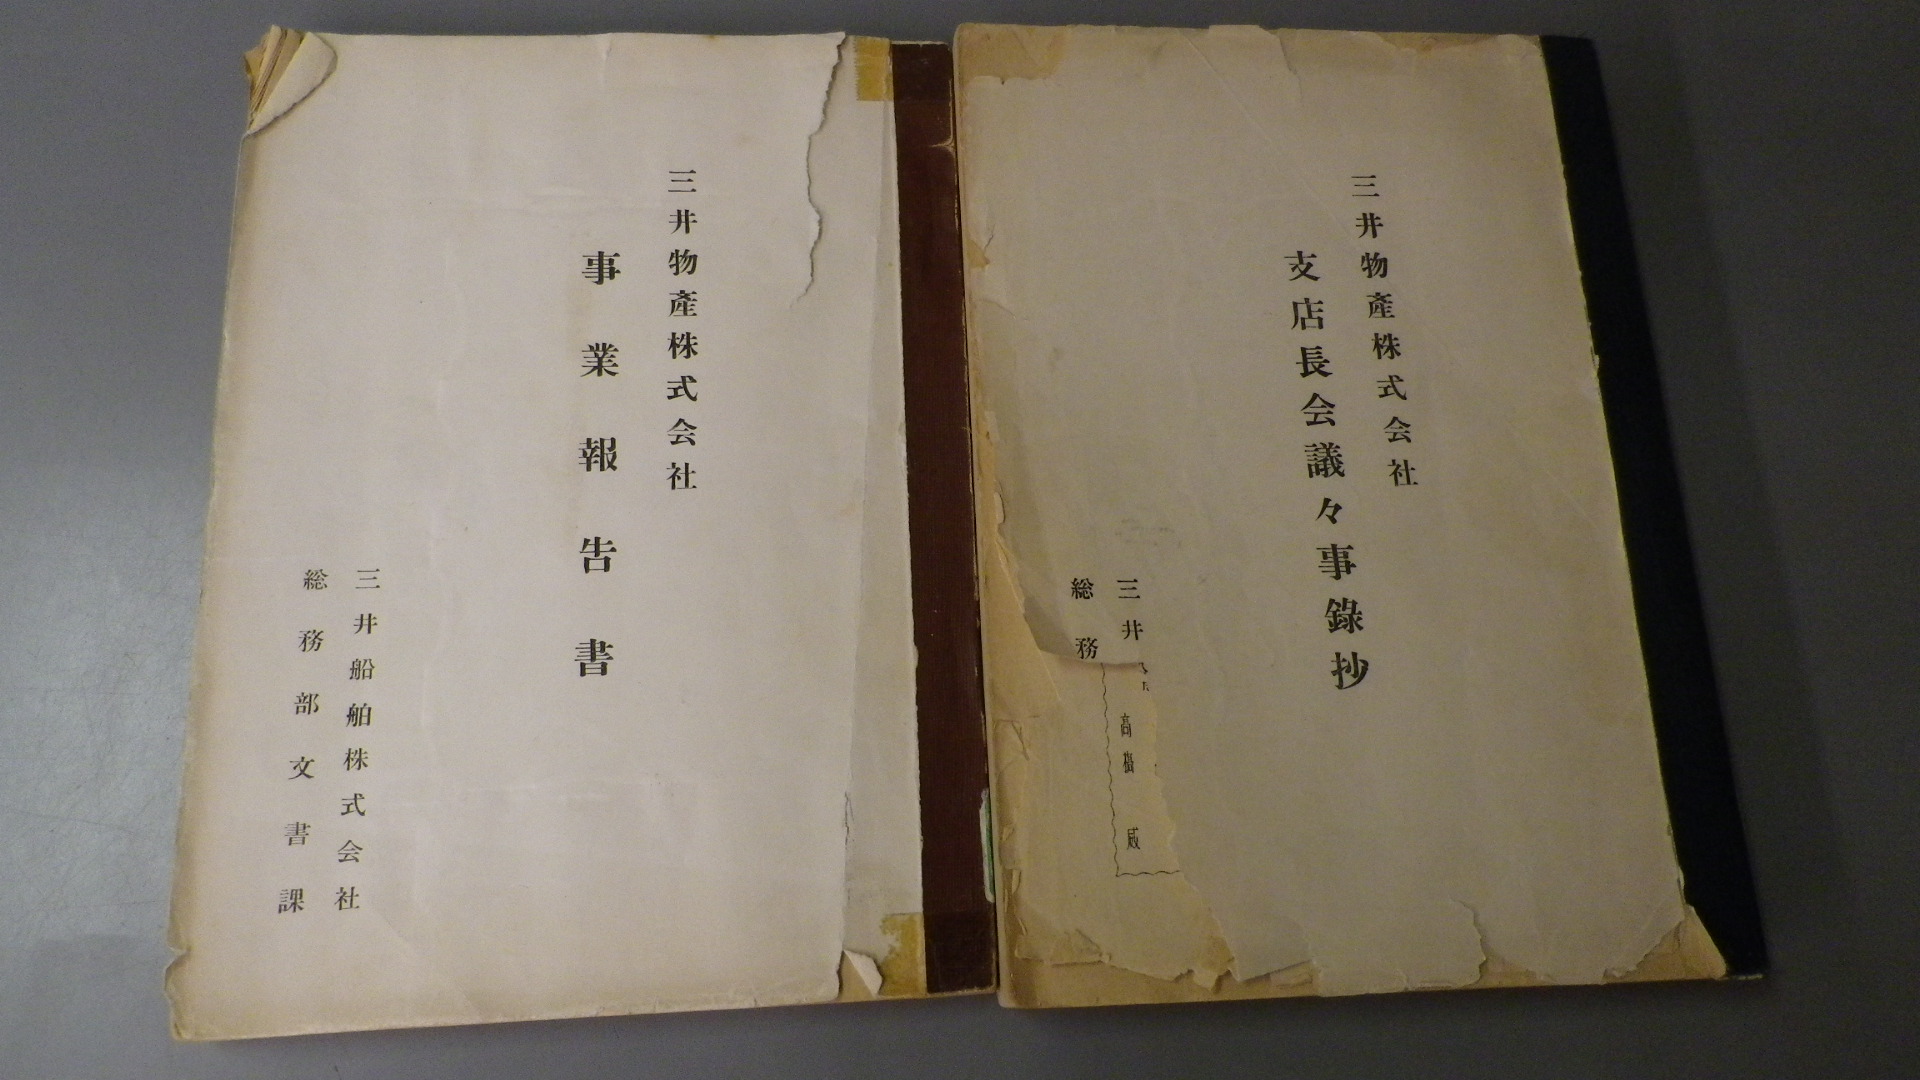 三井物產株式会社
事業報告書
三井船舶株式会社
総務部文書課
三井物產株式会社
支店長会議々事錄抄
三井
総務
高橋